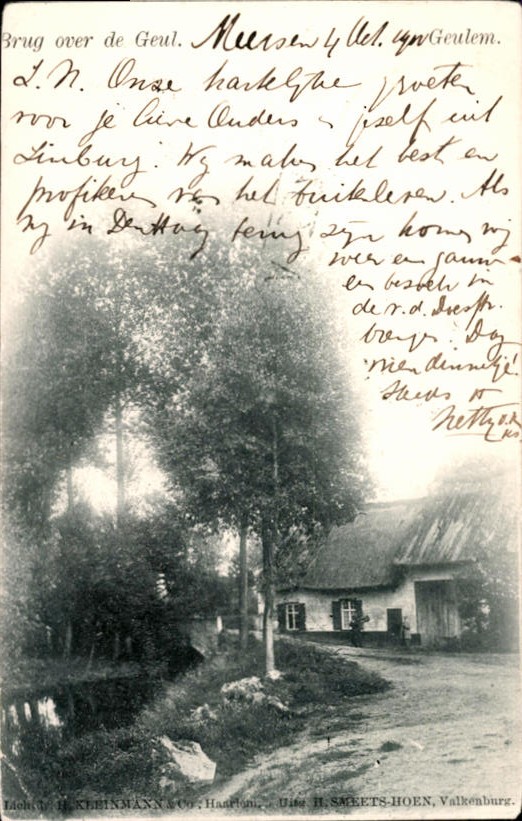 Brug over de Geul. Meersen 4 Oct. 1900 Geulem.
L. N. Onze hartelijke groeten
voor je lieve Ouders en jezelf uit
Limburg. Wij maken het best en
profiteren van het buitenleven. Als
wij in Den Haag terug zijn komen wij
weer een gauw
een bezoek in
de v. d.
Dag
vriendinnetje!
Steeds
Netty v. d.
Lichtdr. H. KLEINMANN & Co., Haarlem. Uitg. H. SMEETS-HOEN, Valkenburg.